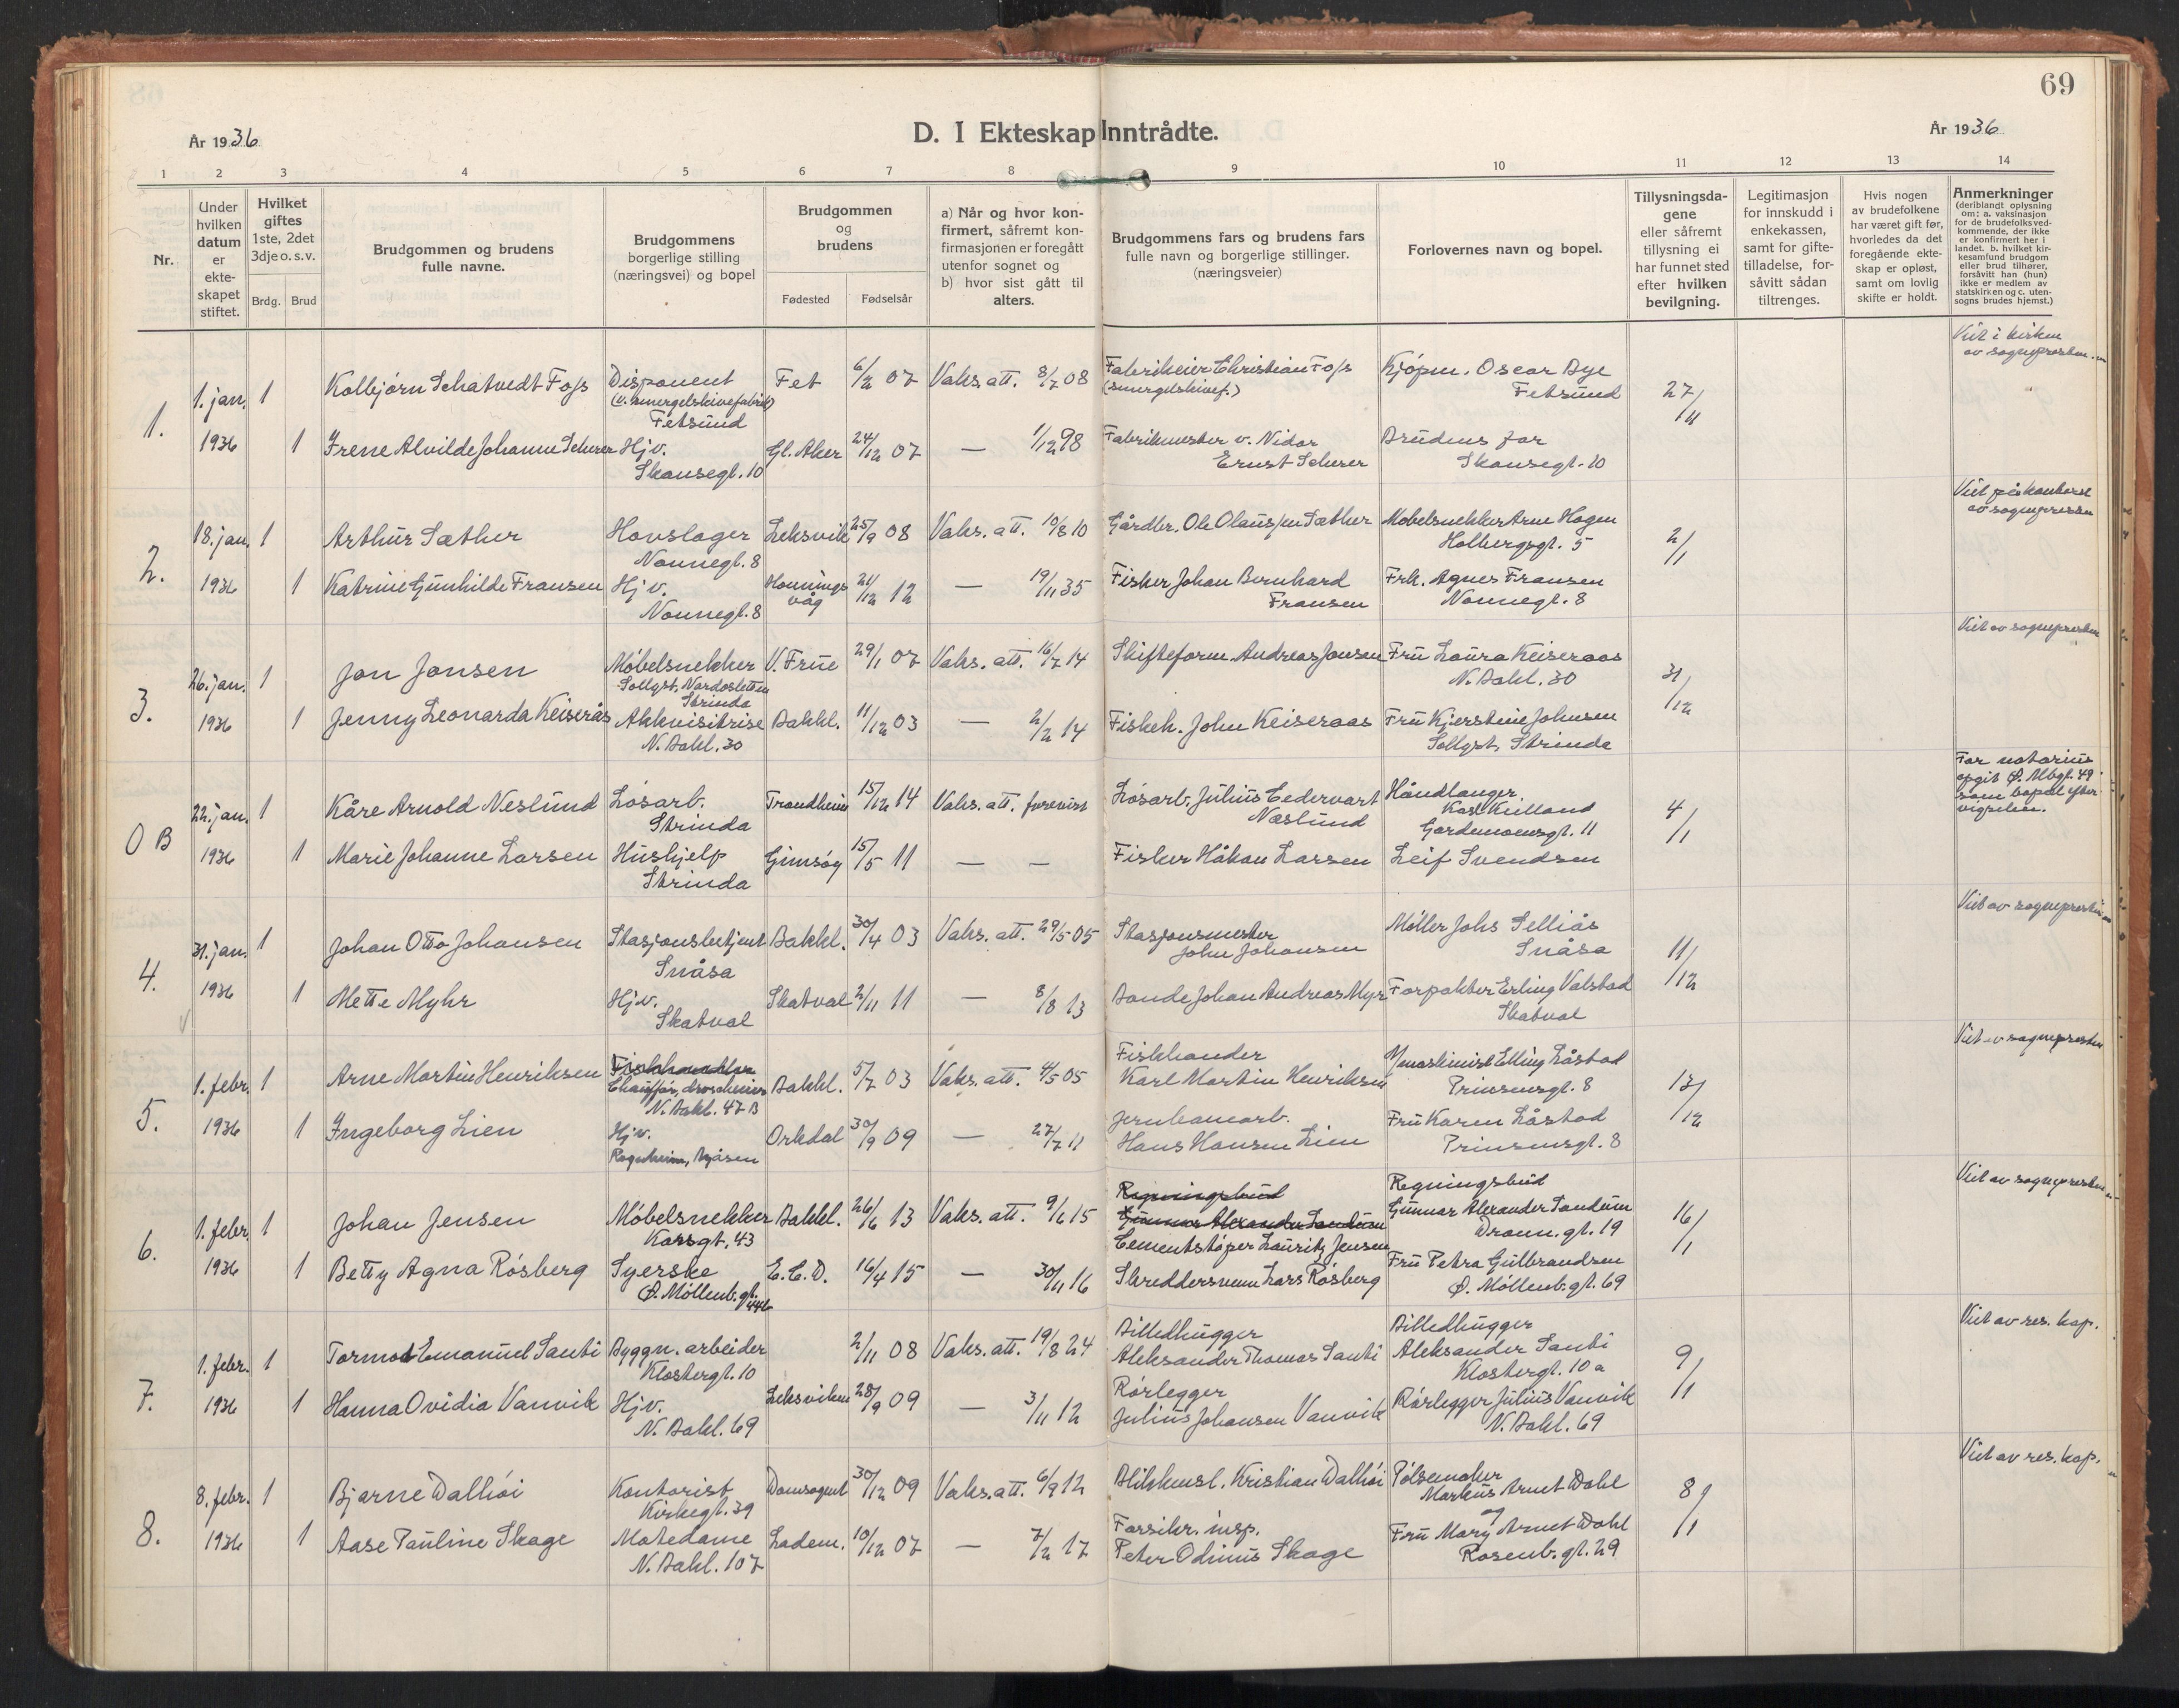 69
År 1936
D. I Ekteskap Inntrådte.
År 1936
1 2 3 4 5 6 7 8 9 10 11 12 13 14
Nr.
Under hvilken datum er ekteskapet stiftet.
Hvilket giftes 1ste, 2det 3dje o. s. v.
Brdg. Brud
Brudgommen og brudens fulle navne.
Brudgommens borgerlige stilling (næringsvei) og bopel
Brudgommen og brudens
Fødested Fødselsår
a) Når og hvor konfirmert, såfremt konfirmasjonen er foregått utenfor sognet og b) hvor sist gått til alters.
Brudgommens fars og brudens fars fulle navn og borgerlige stillinger. (næringsveier)
Forlovernes navn og bopel.
Tillysningsdagene eller såfremt tillysning ei har funnet sted efter hvilken bevilgning.
Legitimasjon for innskudd i enkekassen, samt for giftetilladelse, forsåvitt sådan tiltrenges.
Hvis nogen av brudefolkene har været gift før, hvorledes da det foregående ekteskap er opløst, samt om lovlig skifte er holdt.
Anmerkninger (deriblandt oplysning om: a. vaksinasjon for de brudefolks vedkommende, der ikke er konfirmert her i landet. b. hvilket kirkesamfund brudgom eller brud tilhører, forsåvitt han (hun) ikke er medlem av statskirken og c. utensogns brudes hjemst.)
1.
1. jan. 1 Kolbjørn Schatvedt Foss Disponent (v. smergelskivefabrik) Fetsund Fet 6/2 07 Vaks. att. 8/7 08 Fabrikeier Christian Foss (smergelskivef.) Kjøpm. Oscar Bye Fetsund 27/11 Viet i kirken av sognepresten.
1936 1 Irene Alvilde Johanne Scherer Hjv. Skansegt. 10 Gl. Aker 24/12 07 — 1/12 98 Fabrikmester v. Nidar Ernst Scherer Brudens far Skansegt. 10
2.
18. jan. 1 Arthur Sæther Hovslager Nonnegt. 8 Leksvik 25/9 08 Vaks. att. 10/8 10 Gårdbr. Ole Olaussen Sæther Møbelsnekker Arne Hagen Holbergsgt. 5 2/1 Viet på kontoret av sognepresten
1936 1 Katrine Gunhilde Fransen Hjv. Nonnegt. 8 Honningsvåg 21/12 12 — 19/11 35 Fisker Johan Bernhard Fransen Frk. Agnes Fransen Nonnegt. 8
3.
26. jan. 1 Jon Jonsen Møbelsnekker Sollyst, Nardosletten Strinda V. Frue 29/1 07 Vaks. att. 16/7 14 Skifteform. Andreas Jonsen Fru Laura Keiseraas N. Bakl. 30 31/12 Viet av sognepresten
1936 1 Jenny Leonarda Keiserås Akkvisitrise N. Bakl. 30 Bakkl. 11/12 03 — 2/2 14 Fiskeh. John Keiseraas Fru Kjerstine Johnsen Sollyst, Strinda
0 B
22. jan. 1 Kåre Arnold Neslund Løsarb. Strinda Trondheim 15/12 14 Vaks. att. forevist Løsarb. Julius Cedervart Næslund Håndlanger Karl Kielland Gardemoensgt. 11 4/1 For notarius opgit Ø. Mbgt. 49 som bopæl efter vigselen.
1936 1 Marie Johanne Larsen Hushjelp Strinda Gimsøy 15/5 11 — — Fisker Håkon Larsen Leif Svendsen
4.
31. jan. 1 Johan Otto Johansen Stasjonsbetjent Snåsa Bakkl. 30/4 03 Vaks. att. 29/5 05 Stasjonsmester John Johansen Møller Johs Selliås Snåsa 11/12 Viet av sognepresten
1936 1 Mette Myhr Hjv. Skatval Skatval 2/11 11 — 8/8 13 Bonde Johan Andreas Myr Forpakter Erling Valstad Skatval
5.
1. febr. 1 Arne Martin Henriksen Fiskhandler Chauffør, droscheeier N. Bakl. 47 B Bakkl. 5/7 03 Vaks. att. 4/5 05 Fiskhander Karl Martin Henriksen Maskinist Elling Låstad Prinsensgt. 8 13/12 Viet av sognepresten
1936 1 Ingeborg Lien Hjv. Rognheim, Byåsen Orkdal 30/9 09 — 27/7 11 Jernbanearb. Hans Hansen Lien Fru Karen Låstad Prinsensgt. 8
6.
1. febr. 1 Johan Jensen Møbelsnekker Korsgt. 43 Bakkl. 26/6 13 Vaks. att. 9/6 15 Regningsbud Gunnar Alexander Sandum Cementstøper Lauritz Jensen Regningsbud Gunnar Alexander Sandum Dronn. gt. 19 16/1 Viet av sognepresten
1936 1 Betty Agna Røsberg Syerske Ø. Møllenb. gt. 44b E. C. D. 16/4 15 — 30/11 16 Skreddersvenn Lars Røsberg Fru Petra Gulbrandsen Ø. Møllenb. gt. 69
7.
1. febr. 1 Tormod Emanuel Santi Byggn. arbeider Klostergt. 10 2/11 08 Vaks. att. 19/8 24 Billedhugger Aleksander Thomas Santi Billedhugger Aleksander Santi Klostergt. 10 a 9/1 Viet av res. kap.
1936 1 Hanna Ovidia Vanvik Hjv. N. Bakl. 69 Leksviken 28/9 09 — 3/11 12 Rørlegger Julius Johansen Vanvik Rørlegger Julius Vanvik N. Bakl. 69
8.
8. febr. 1 Bjarne Dalhøi Kontorist Kirkegt. 39 Domsognet 30/12 09 Vaks. att. 6/9 12 Blikkensl. Kristian Dalhøi Pølsemaker Markus Arnet Dahl og 8/1 Viet av res. kap.
1936 1 Aase Pauline Skage Motedame N. Bakl. 107 Ladem. 10/12 07 — 7/2 17 Forsikr. insp. Peter Odinius Skage Fru Mary Arnet Dahl Rosenb. gt. 29